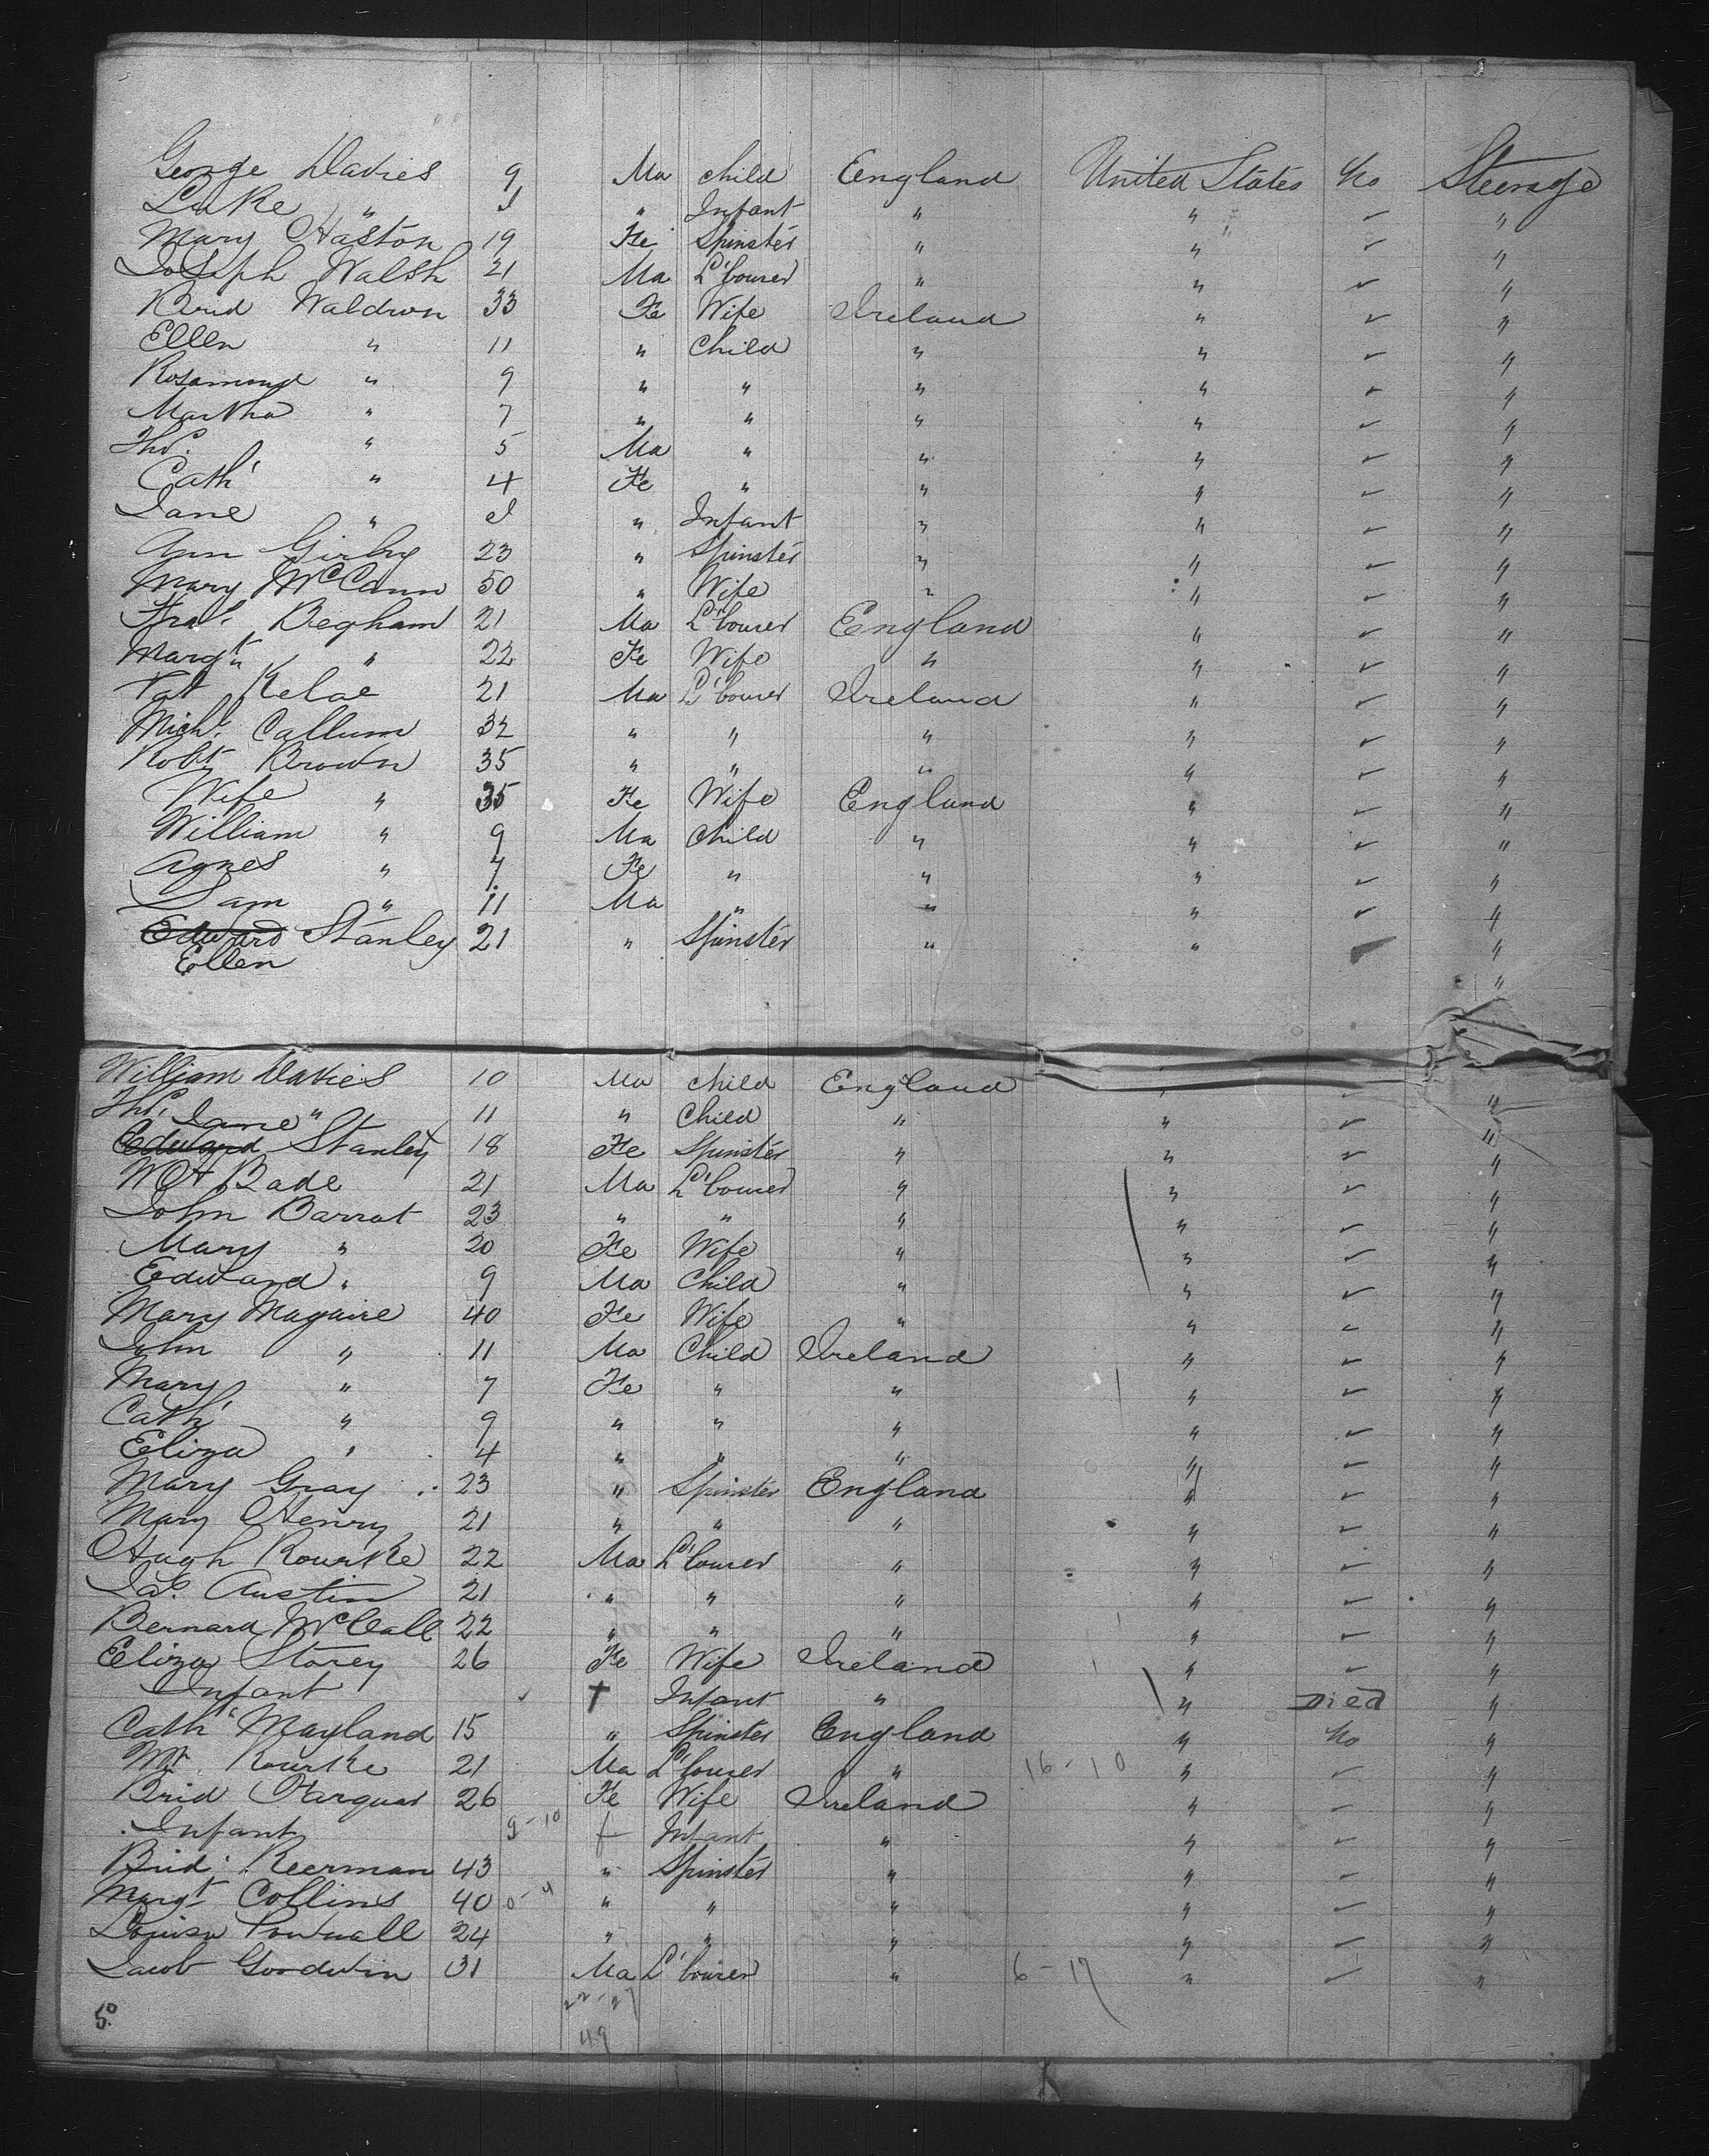 George Davies 9 Ma Child England United States No Steerage
Luke " I " Infant " " ✓ "
Mary Haston 19 Fe Spinster " " ✓ "
Joseph Walsh 21 Ma L'bourer " " ✓ "
Brid Waldron 33 Fe Wife Ireland " ✓ "
Ellen " 11 " Child " " ✓ "
Rosamond " 9 " " " " ✓ "
Martha " 7 " " " " ✓ "
Thos. " 5 Ma " " " ✓ "
Cath' " 4 Fe " " " ✓ "
Jane " I " Infant " " ✓ "
Ann 23 " Spinster " " ✓ "
Mary McCann 50 " Wife " " ✓ "
Fras. Begham 21 Ma L'bourer England " ✓ "
Margt " 22 Fe Wife " " ✓ "
Pat Keloe 21 Ma L'bourer Ireland " ✓ "
Michl. Callum 32 " " " " ✓ "
Robt Brown 35 " " " " ✓ "
Wife " 35 Fe Wife England " ✓ "
William " 9 Ma Child " " ✓ "
Agnes " 7 Fe " " " ✓ "
Sam " 11 Ma " " " ✓ "
Edward Stanley 21 " Spinster " " "
Ellen "
William Davies 10 Ma Child England " ✓ "
Thos. " 11 " Child " " ✓ "
Jane
Edward Stanley 18 Fe Spinster " " ✓ "
Wm Bade 21 Ma L'bourer " " ✓ "
John Barrat 23 " " " " ✓ "
Mary " 20 Fe Wife " " ✓ "
Edward " 9 Ma Child " " ✓ "
Mary Maguire 40 Fe Wife " " ✓ "
John " 11 Ma Child Ireland " ✓ "
Mary " 7 Fe " " " ✓ "
Cath' " 9 " " " " ✓ "
Eliza " 4 " " " " ✓ "
Mary Gray 23 " Spinster England " ✓ "
Mary Henry 21 " " " " ✓ "
Hugh Rourke 22 Ma L'bourer " " ✓ "
Jas. Austin 21 " " " " ✓ "
Bernard McCall 22 " " " " ✓ "
Eliza Storey 26 Fe Wife Ireland " ✓ "
Infant † Infant " " Died "
Cath' Mayland 15 " Spinster England " No "
Rourke 21 Ma L'bourer " 16-10 " ✓ "
Brid Farquar 26 Fe Wife Ireland " ✓ "
Infant 9-10 † Infant " " ✓ "
Brid. Keerman 43 " Spinster " " ✓ "
Margt Collins 40 0-4 " " " " ✓ "
Louisa Pownall 24 " " " " ✓ "
Jacob Goodwin 31 Ma L'bourer " 6-17 " ✓ "
22-27
5º 49